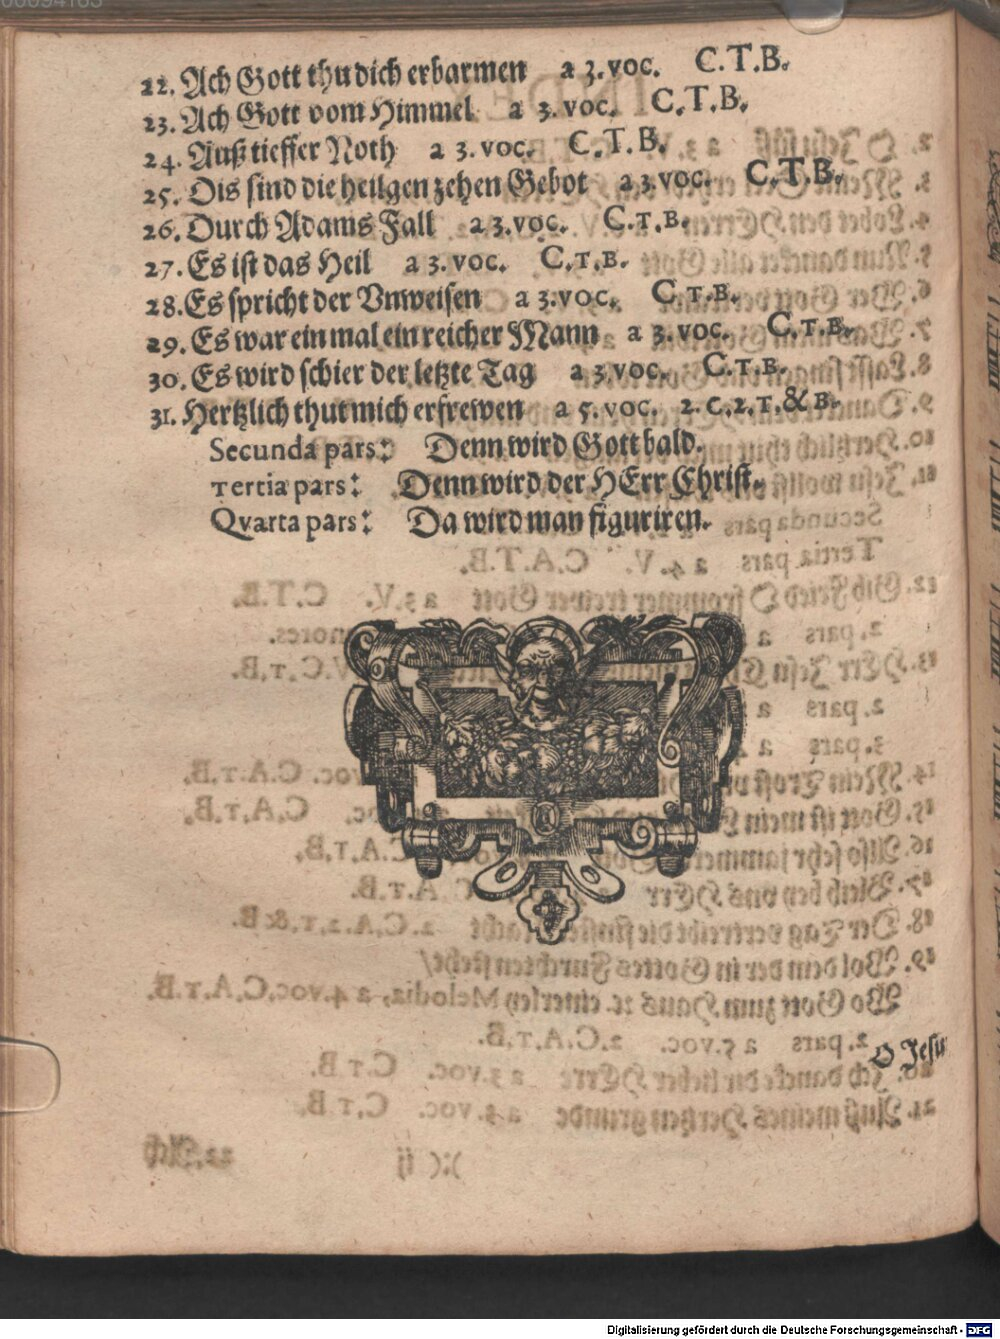 22. Ach Gott thu dich erbarmen a 3. voc. C.T.B.
23. Ach Gott vom Himmel a 3. voc. C.T.B.
24. Auß tieffer Noth a 3. voc. C.T.B.
25. Dis sind die heilgen zehen Gebot a 3. voc. C.T.B.
26. Durch Adams Fall a 3. voc. C.T.B.
27. Es ist das Heil a 3. voc. C.T.B.
28. Es spricht der Vnweisen a 3. voc. C.T.B.
29. Es war ein mal ein reicher Mann a 3. voc. C.T.B.
30. Es wird schier der letzte Tag a 3. voc. C.T.B.
31. Hertzlich thut mich erfrewen a 5. voc. 2.C.2.T.& B.
Secunda pars: Denn wird Gott bald.
Tertia pars: Denn wird der HErr Christ.
Qvarta pars: Da wird man figuriren.
O Jesu
Digitalisierung gefördert durch die Deutsche Forschungsgemeinschaft - DFG